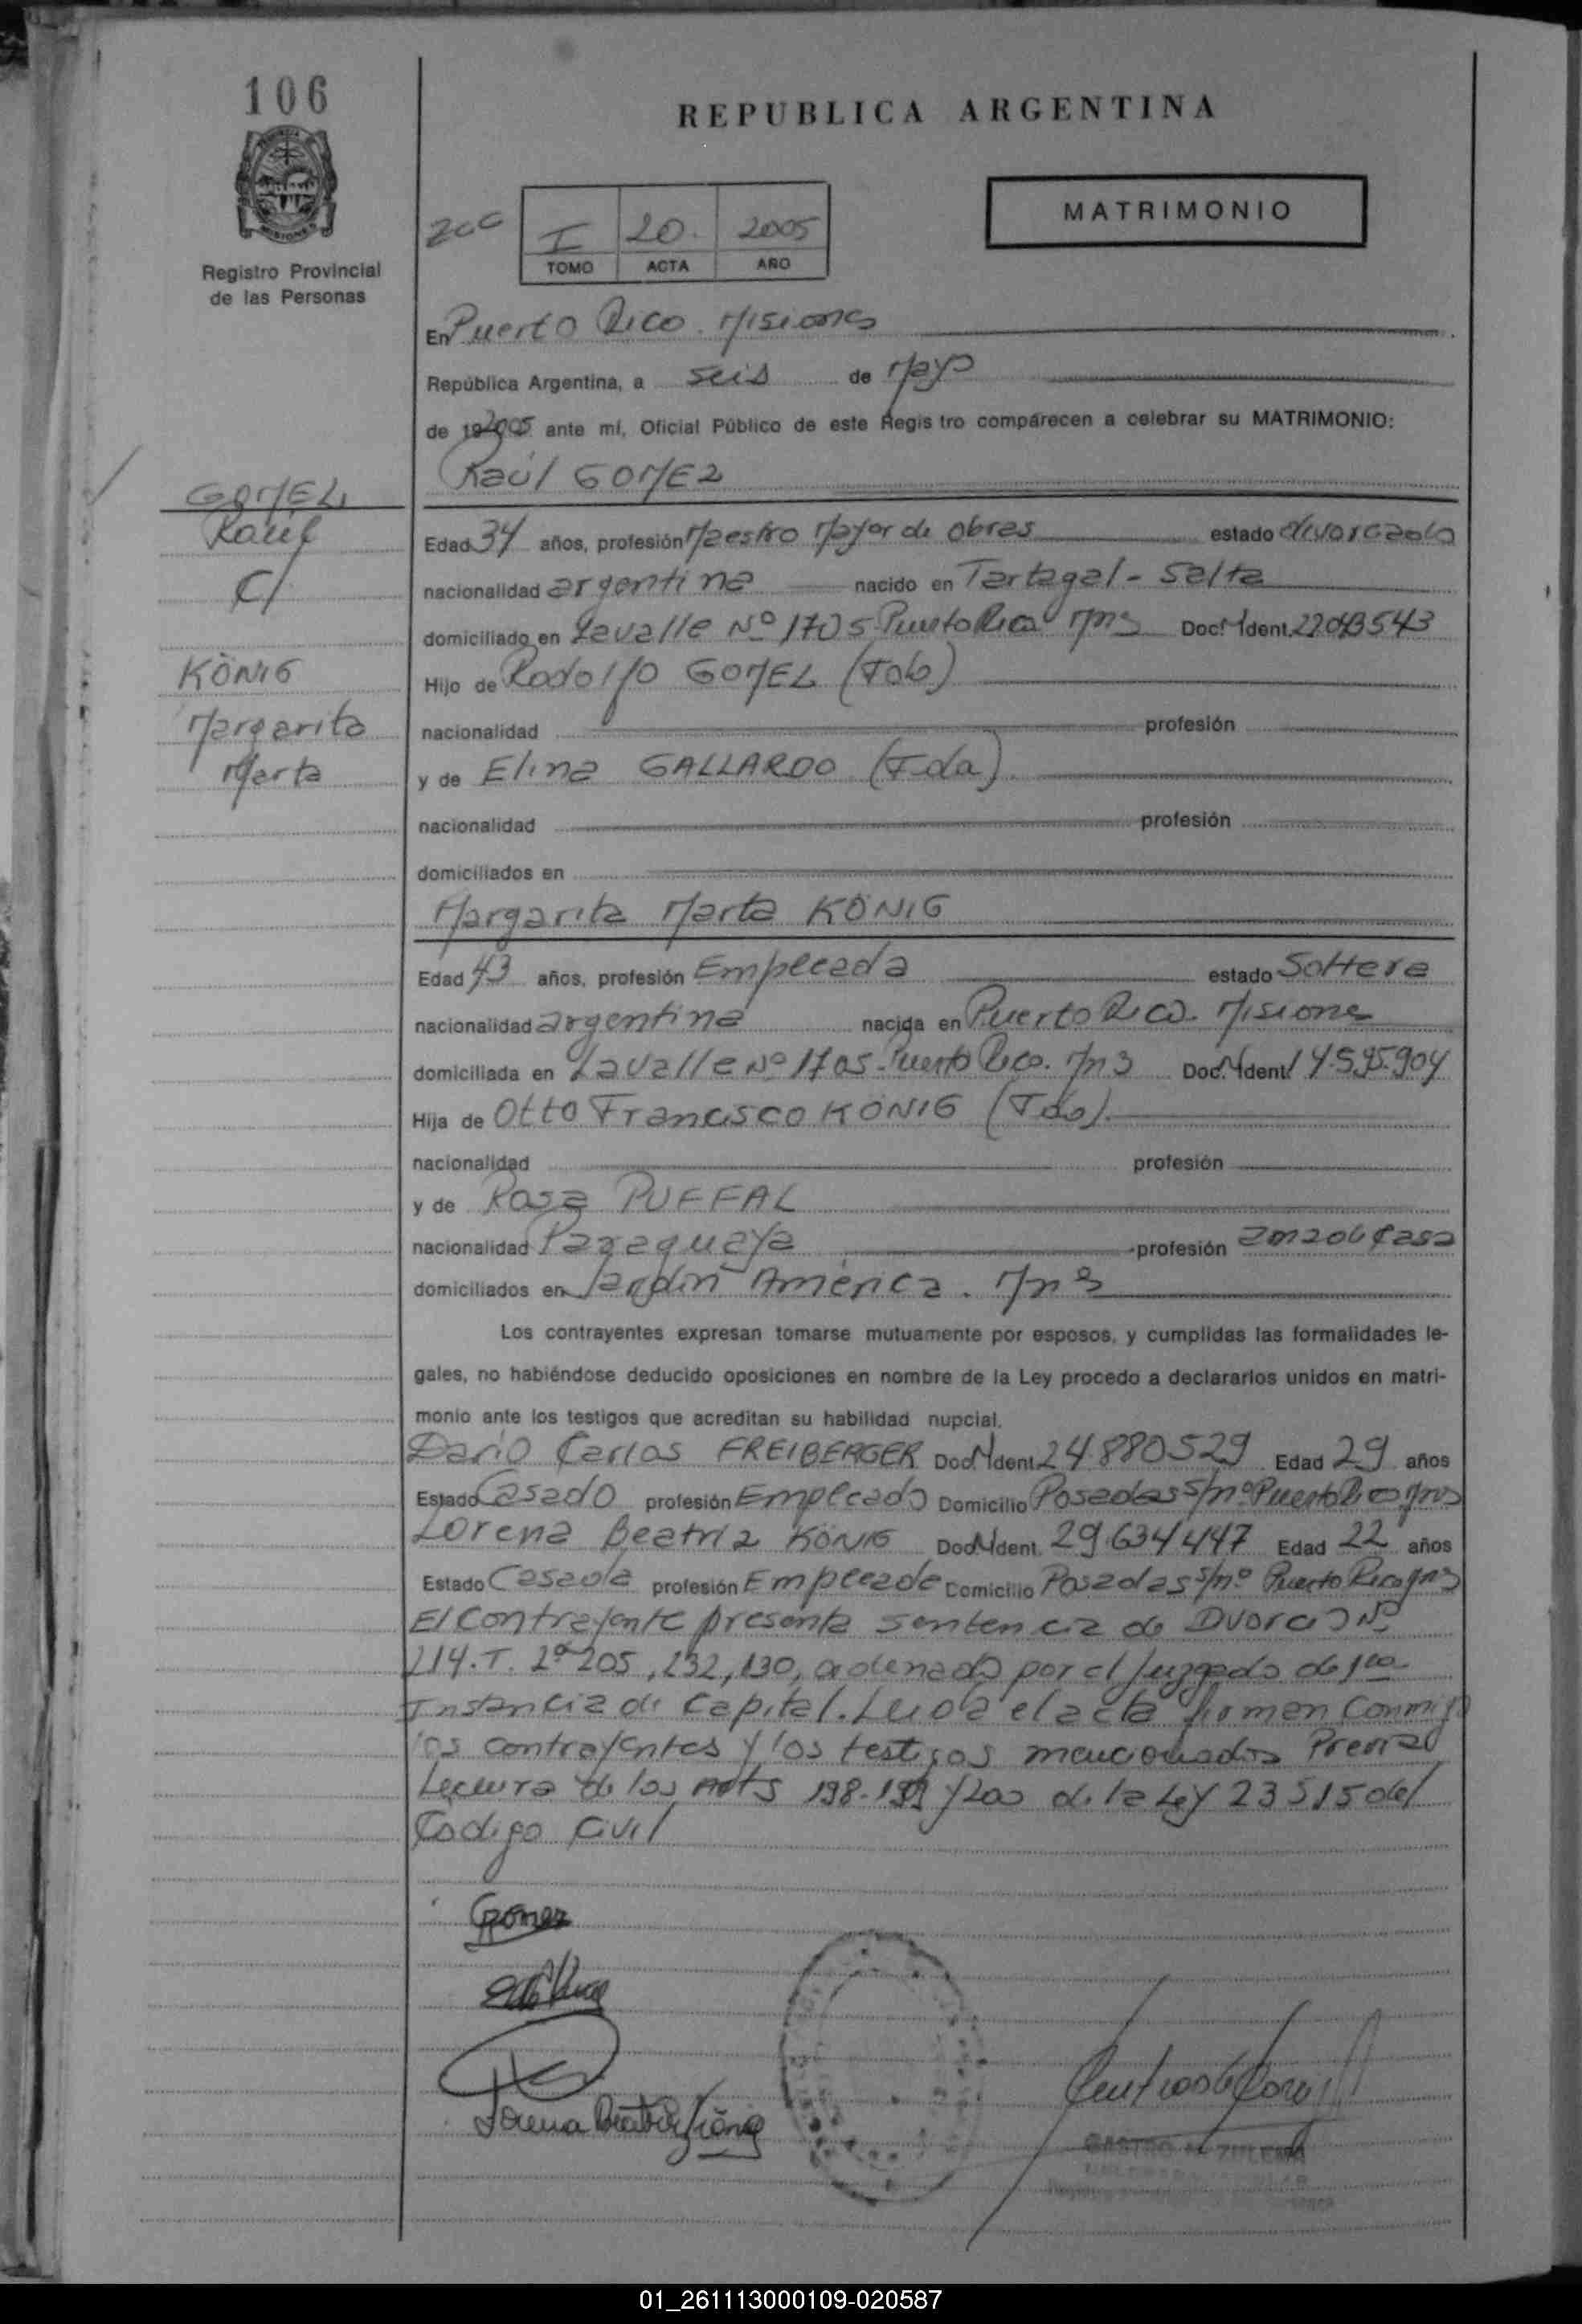 106
REPUBLICA ARGENTINA
MATRIMONIO
I 20. 2005
TOMO ACTA AÑO
Registro Provincial
de las Personas
En Puerto Rico. Misiones
República Argentina, a seis de Mayo
de 192005 ante mí, Oficial Público de este Regis tro comparecen a celebrar su MATRIMONIO:
Raúl GOMEZ
GOMEZ
Raúl
C/
KÖNIG
Margarita
Marta
Edad 34 años, profesión Maestro Mayor de obras estado divorciado
nacionalidad argentina nacido en Tartagal - Salta
domiciliado en Lavalle Nº 1705 Puerto Rico Mns Doc. N Ident. 22043543
Hijo de Rodolfo GOMEZ (Fdo)
nacionalidad profesión
y de Elina GALLARDO (Fda)
nacionalidad profesión
domiciliados en
Margarita Marta KÖNIG
Edad 43 años, profesión Empleada estado Soltera
nacionalidad argentina nacida en Puerto Rico. Misiones
domiciliada en Lavalle Nº 1705 - Puerto Rico. Mns Doc. N Ident. 14.595.904
Hija de Otto Francisco KÖNIG (Fdo).
nacionalidad profesión
y de Rosa PUFFAL
nacionalidad Paraguaya profesión ama de casa
domiciliados en Jardín América. Mns
Los contrayentes expresan tomarse mutuamente por esposos, y cumplidas las formalidades le-
gales, no habiéndose deducido oposiciones en nombre de la Ley procedo a declararlos unidos en matri-
monio ante los testigos que acreditan su habilidad nupcial.
Dario Carlos FREIBERGER Doc N Ident 24.880529 Edad 29 años
Estado Casado profesión Empleado Domicilio Posadas s/nº Puerto Rico Mns
Lorena Beatriz KÖNIG Doc N Ident. 29.634447 Edad 22 años
Estado Casada profesión Empleada Domicilio Posadas s/nº Puerto Rico Mns
El contrayente presenta sentencia de Divorcio Nº
214. T. 2º 205, 232, 130, ordenado por el Juzgado de 1ra
Instancia de Capital. Leida el acta firman conmigo
los contrayentes y los testigos mencionados Previa
Lectura de los Arts 198-199 y 200 de la Ley 23515 del
Codigo Civil
Gomez
Lorena Beatriz König
CASTRO ZULEMA
01_261113000109-020587